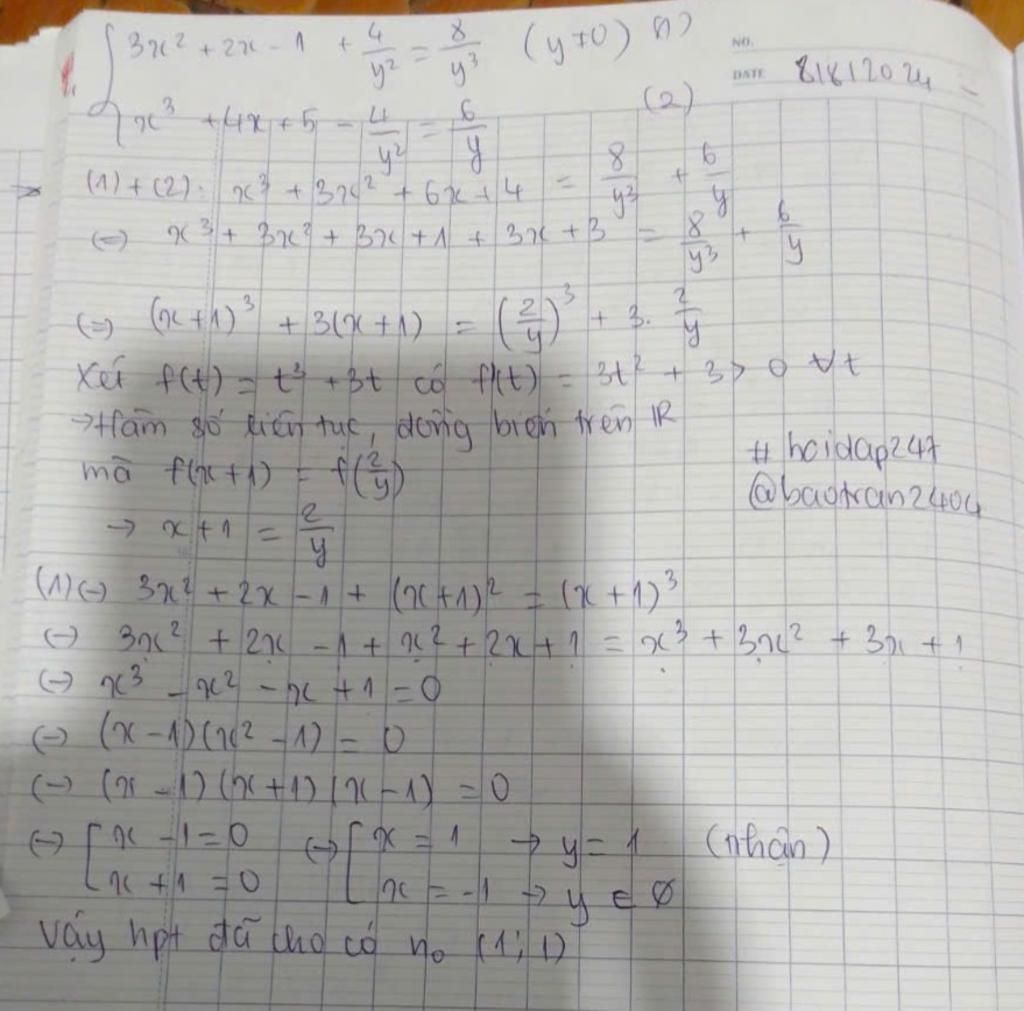 3x² + 2x - 1 + 4/y² = 8/y³ (y≠0) (1)
NO.
DATE 8/8/2024
x³ + 4x + 5 - 4/y² = 6/y (2)
(1)+(2): x³ + 3x² + 6x + 4 = 8/y³ + 6/y
(⇔) x³ + 3x² + 3x + 1 + 3x + 3 = 8/y³ + 6/y
(⇔) (x+1)³ + 3(x+1) = (2/y)³ + 3. 2/y
Xét f(t) = t³ + 3t có f'(t) = 3t² + 3 > 0 ∀t
→ Hàm số liên tục, đồng biến trên IR
mà f(x+1) = f(2/y)
# hoidap247
@baotran2404
→ x+1 = 2/y
(1) ⇔ 3x² + 2x - 1 + (x+1)² = (x+1)³
⇔ 3x² + 2x - 1 + x² + 2x + 1 = x³ + 3x² + 3x + 1
⇔ x³ - x² - x + 1 = 0
⇔ (x-1)(x²-1) = 0
⇔ (x-1)(x+1)(x-1) = 0
⇔ [ x-1=0 ⇔ [ x = 1 → y = 1 (nhận)
x+1=0 x = -1 → y ∈ ∅
Vậy hpt đã cho có no (1;1)